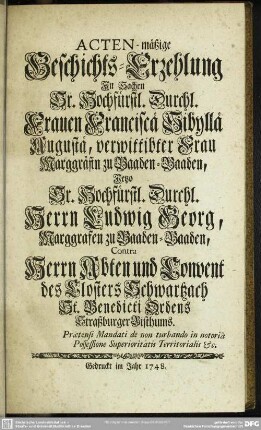 ACTEN-mäßige
Geschichts-Erzehlung
In Sachen
Jr. Hochfürstl. Durchl.
Frauen Franciscä Sibyllä
Augustä, verwittibter Frau
Marggräfin zu Baaden-Baaden,
Jetzo
Sr. Hochfürstl. Durchl.
Herrn Ludwig Georg,
Marggrafen zu Baaden-Baaden,
Contra
Herrn Abten und Convent
des Closters Schwartzach
St. Benedicti Ordens
Straßburger Bisthums.
Prætensi Mandati de non turbando in notoriâ
Possessione Superioritatis Territorialis &c.
Gedruckt im Jahr 1748.